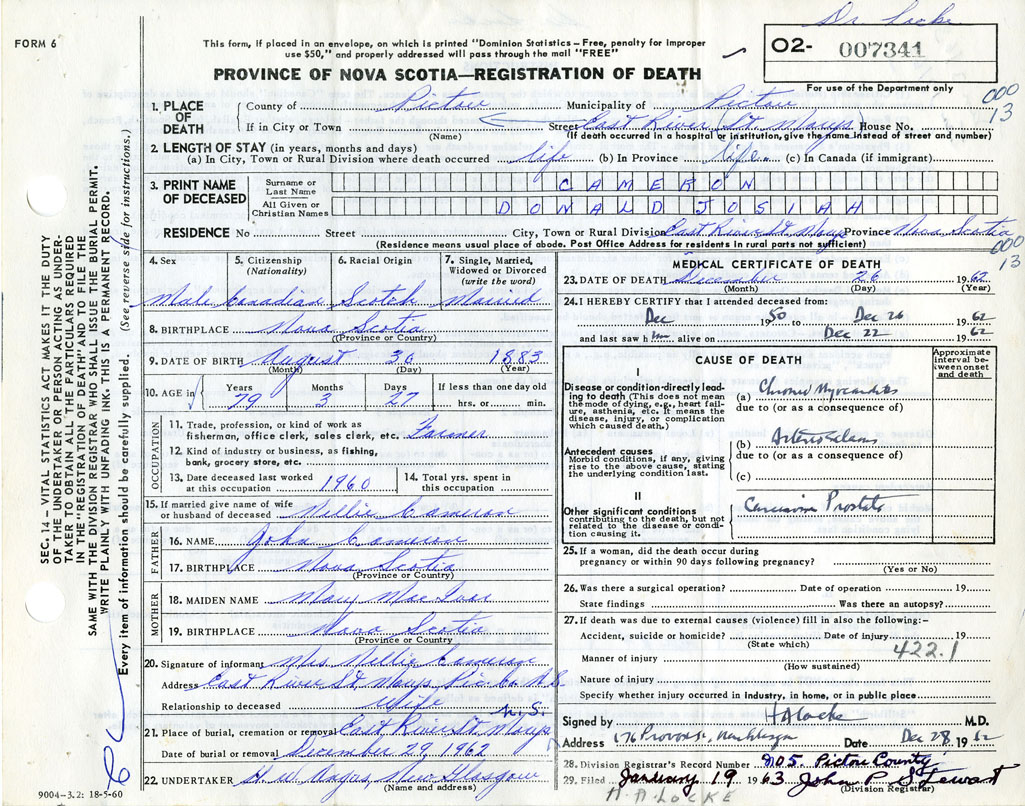 Dr Locke
FORM 6
This form, if placed in an envelope, on which is printed "Dominion Statistics – Free, penalty for improper
use $50," and properly addressed will pass through the mail "FREE"
O2- 007341
PROVINCE OF NOVA SCOTIA—REGISTRATION OF DEATH
For use of the Department only
000
13
1. PLACE OF DEATH
County of Pictou Municipity of Pictou
If in City or Town Street East River St. Marys House No.
(Name) (If death occurred in a hospital or institution, give the name instead of street and number)
2. LENGTH OF STAY (in years, months and days)
(a) In City, Town or Rural Division where death occurred life (b) In Province life (c) In Canada (if immigrant)
3. PRINT NAME OF DECEASED
Surname or Last Name CAMERON
All Given or Christian Names DONALD JOSIAH
RESIDENCE No Street City, Town or Rural Division East River St. Marys Province Nova Scotia
(Residence means usual place of abode. Post Office Address for residents in rural parts not sufficient)
000
13
4. Sex 5. Citizenship (Nationality) 6. Racial Origin 7. Single, Married, Widowed or Divorced (write the word)
Male Canadian Scotch Married
8. BIRTHPLACE Nova Scotia
(Province or Country)
9. DATE OF BIRTH August 30 1883
(Month) (Day) (Year)
10. AGE in Years Months Days If less than one day old
79 3 27 hrs. or min.
OCCUPATION
11. Trade, profession, or kind of work as
fisherman, office clerk, sales clerk, etc. Farmer
12. Kind of industry or business, as fishing,
bank, grocery store, etc.
13. Date deceased last worked at this occupation 1960
14. Total yrs. spent in this occupation
15. If married give name of wife
or husband of deceased Nellie Cameron
FATHER
16. NAME John Cameron
17. BIRTHPLACE Nova Scotia
(Province or Country)
MOTHER
18. MAIDEN NAME Mary Mac
19. BIRTHPLACE Nova Scotia
(Province or Country)
20. Signature of informant Mrs Nellie Cameron
Address East River St. Marys Pic. Co. N.S.
Relationship to deceased wife
N.S.
21. Place of burial, cremation or removal East River St. Marys
Date of burial or removal December 29, 1962
22. UNDERTAKER H. W. Angus, New Glasgow
(Name and address)
MEDICAL CERTIFICATE OF DEATH
23. DATE OF DEATH December 26 1962
(Month) (Day) (Year)
24. I HEREBY CERTIFY that I attended deceased from:
Dec 1950 to Dec 26 1962
and last saw him alive on Dec 22 1962
CAUSE OF DEATH
Approximate interval between onset and death
I
Disease or condition directly leading to death (This does not mean the mode of dying, e.g., heart failure, asthenia, etc. It means the disease, injury, or complication which caused death.)
(a) Chronic Myocarditis
due to (or as a consequence of)
Antecedent causes
Morbid conditions, if any, giving rise to the above cause, stating the underlying condition last.
(b)
due to (or as a consequence of)
(c)
II
Other significant conditions
contributing to the death, but not related to the disease or condition causing it.
Carcinoma Prostate
25. If a woman, did the death occur during
pregnancy or within 90 days following pregnancy?
(Yes or No)
26. Was there a surgical operation? Date of operation 19
State findings Was there an autopsy?
27. If death was due to external causes (violence) fill in also the following:-
Accident, suicide or homicide? Date of injury 19
(State which)
422.1
Manner of injury
(How sustained)
Nature of injury
Specify whether injury occurred in industry, in home, or in public place
Signed by H A Locke M.D.
Address 176 Provost, New Glasgow Date Dec 28 1962
28. Division Registrar's Record Number 205. Pictou County
29. Filed January 19 1963 John P Stewart
(Division Registrar)
H. A. LOCKE
SEC. 14 – VITAL STATISTICS ACT MAKES IT THE DUTY
OF THE UNDERTAKER OR PERSON ACTING AS UNDER-
TAKER "TO OBTAIN ALL THE PARTICULARS REQUIRED
IN THE "REGISTRATION OF DEATH" AND TO FILE THE
SAME WITH THE DIVISION REGISTRAR WHO SHALL ISSUE THE BURIAL PERMIT.
WRITE PLAINLY WITH UNFADING INK. THIS IS A PERMANENT RECORD.
Every item of information should be carefully supplied. (See reverse side for instructions.)
9004-3.2: 18-5-60